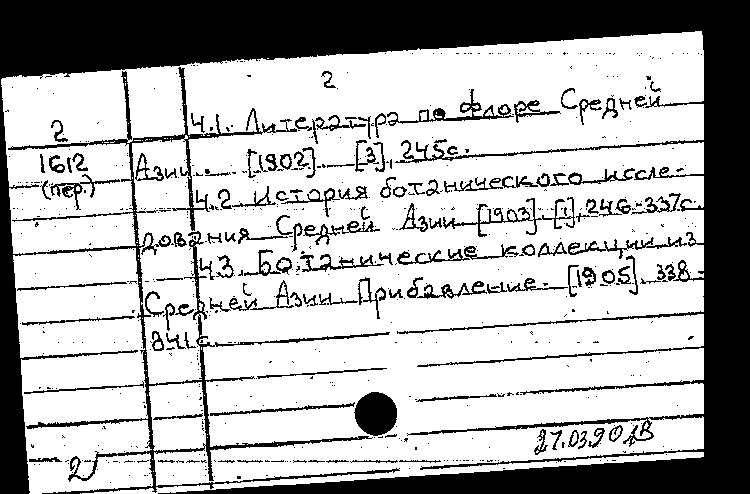 2
2
Ч.1. Литература по флоре Средней
1612
(пер.)
Азии. [1902]. [3], 245с.
Ч.2. История ботанического иссле-
дования Средней Азии [1903]. [1], 246-337с.
Ч.3. Ботанические коллекции из
Средней Азии. Прибавление. [1905]. 338-
841с.
27.03.90
2